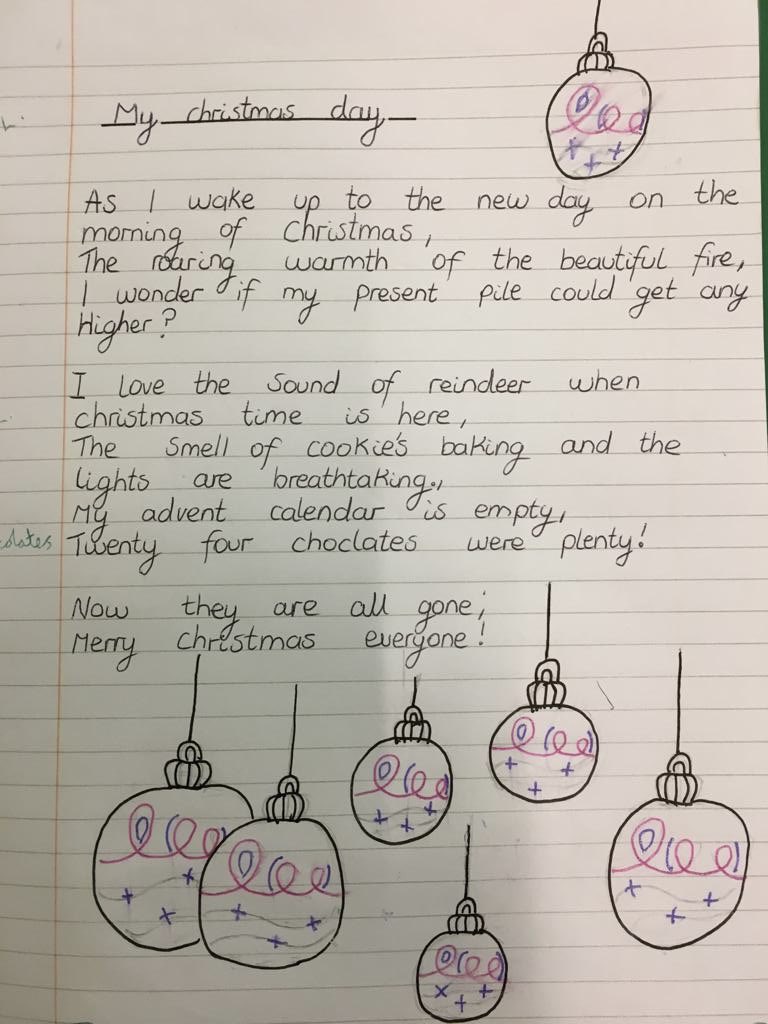 My christmas day
As I wake up to the new day on the
morning of Christmas,
The roaring warmth of the beautiful fire,
I wonder if my present pile could get any
Higher?
I love the sound of reindeer when
christmas time is here,
The smell of cookie's baking and the
lights are breathtaking.,
My advent calendar is empty,
Twenty four choclates were plenty!
Now they are all gone;
Merry christmas everyone!